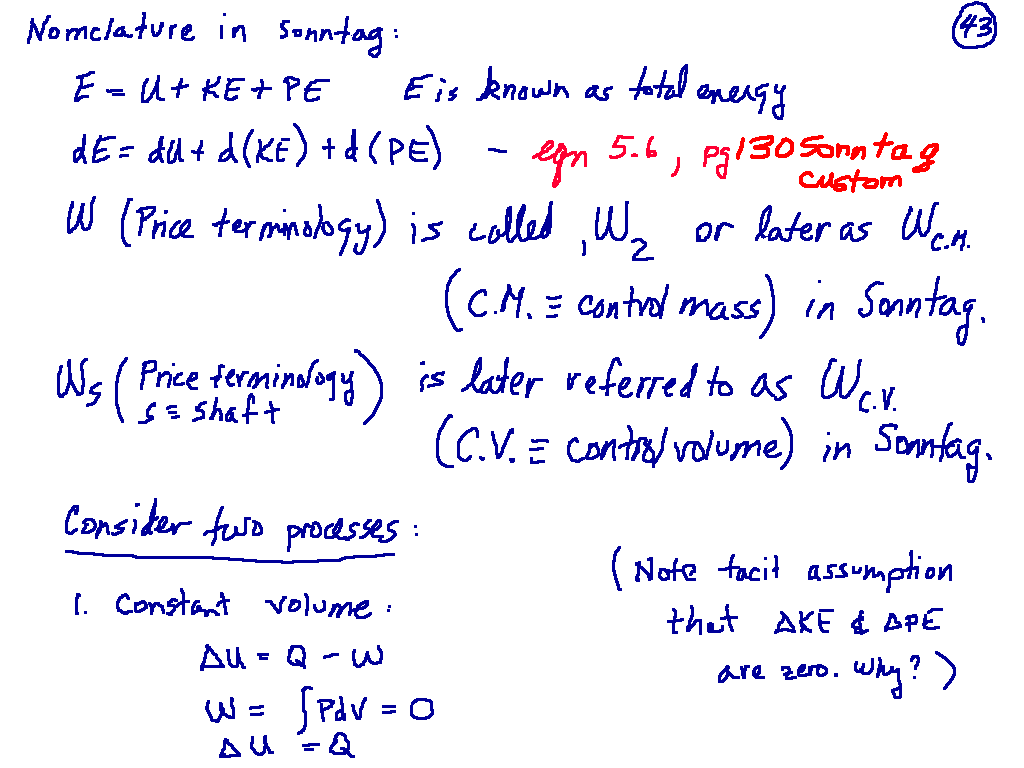 Nomclature in Sonntag:
43
E = U + KE + PE E is known as total energy
dE = dU + d(KE) + d(PE) - eqn 5.6, pg 130 Sonntag
custom
W (Price terminology) is called ₁W₂ or later as W_C.M.
(C.M. ≡ control mass) in Sonntag.
W_S (Price terminology) is later referred to as W_C.V.
s ≡ shaft
(C.V. ≡ control volume) in Sonntag.
Consider two processes:
(Note tacit assumption
1. Constant volume:
that ΔKE & ΔPE
ΔU = Q - W
are zero. Why?)
W = ∫PdV = 0
ΔU = Q